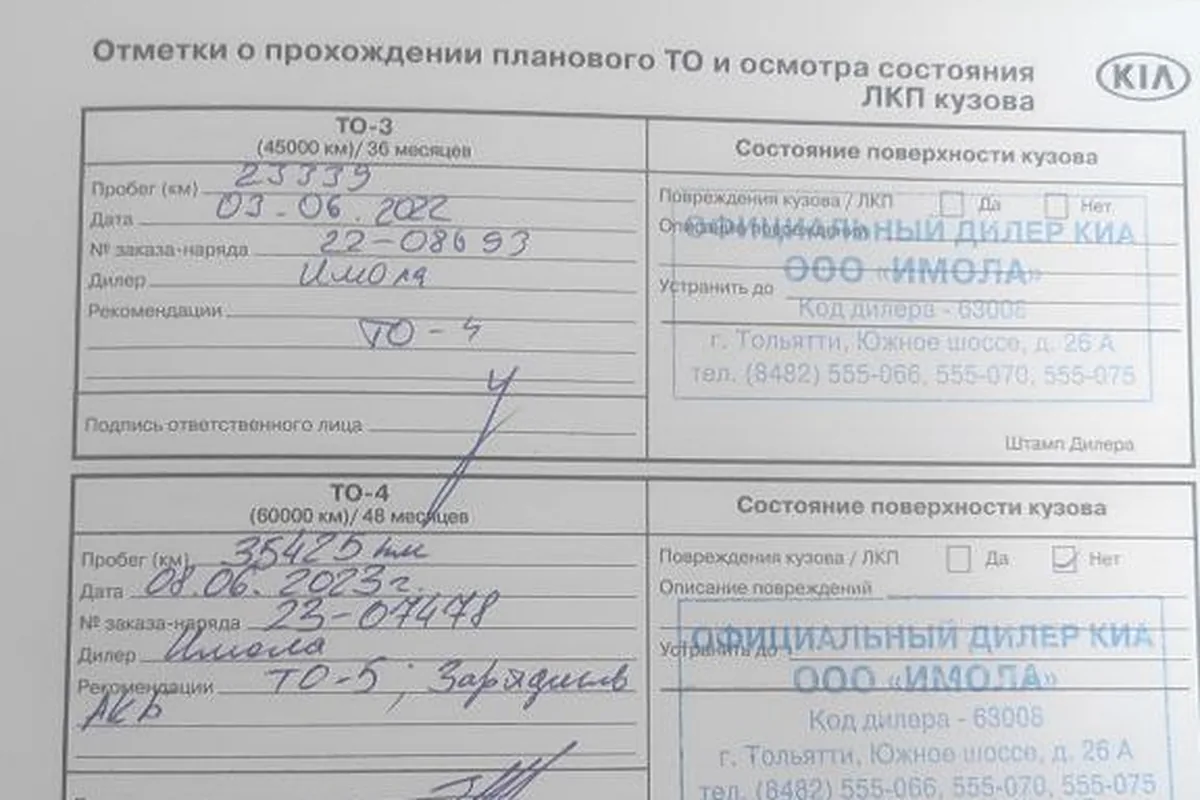 Отметки о прохождении планового ТО и осмотра состояния
ЛКП кузова
KIA
ТО-3
(45000 км)/ 36 месяцев
Пробег (км) 23339
Дата 03-06.2022
№ заказа-наряда 22-08693
Дилер Имола
Рекомендации
ТО-4
Подпись ответственного лица
Состояние поверхности кузова
Повреждения кузова / ЛКП Да Нет
Описание повреждений
ОФИЦИАЛЬНЫЙ ДИЛЕР КИА
ООО «ИМОЛА»
Устранить до
Код дилера - 63008
г. Тольятти, Южное шоссе, д. 26 А
тел. (8482) 555-066, 555-070, 555-075
Штамп Дилера
ТО-4
(60000 км)/ 48 месяцев
Пробег (км) 35425 км
Дата 08.06.2023г.
№ заказа-наряда 23-07478
Дилер Имола
Рекомендации ТО-5; Зарядить
АКБ
Состояние поверхности кузова
Повреждения кузова / ЛКП Да Нет
Описание повреждений
ОФИЦИАЛЬНЫЙ ДИЛЕР КИА
Устранить до
ООО «ИМОЛА»
Код дилера - 63008
г. Тольятти, Южное шоссе, д. 26 А
тел. (8482) 555-066, 555-070, 555-075